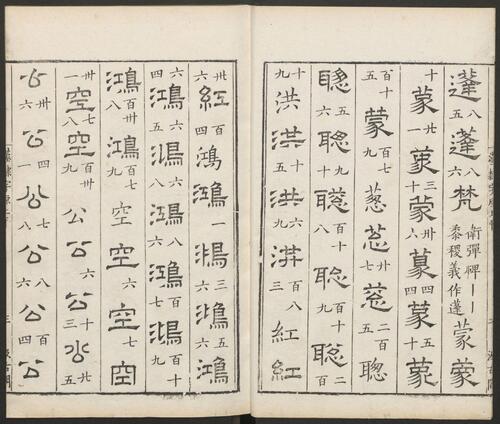 蓬八蓬八六梵衛彈碑一一黍稷義作蓬蒙蒙
十蒙廿一蒙十三蒙卅六蒙四蒙十四蒙
百十五蒙百九蔥十九蔥卅七蔥二百聰
聰六聰九聰八十聰百九十聰二百
十九洪十五洪六九洪百八洪三紅紅
卅六紅百四鴻鴻一鴻三六鴻五鴻
六四鴻六五鴻八鴻十八鴻百七鴻百十九
鴻百卅八鴻百七九空空六空七空
卅一空五八空七九百卅公公六公十三公廿五
公卅六公四一公七八公六公四公